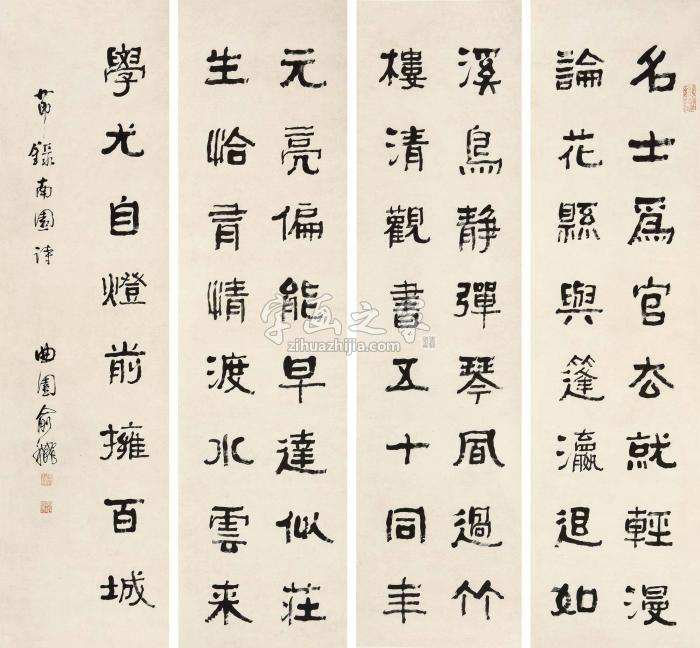 名士為官去就輕漫
論花縣與蓬瀛退如
溪鳥靜彈琴風過竹
樓清觀書五十同年
元亮偏能早達似莊
生恰有情渡水雲来
學尤自燈前擁百城
莭録南園詩 曲園俞樾
字画之家
zihuazhijia.com